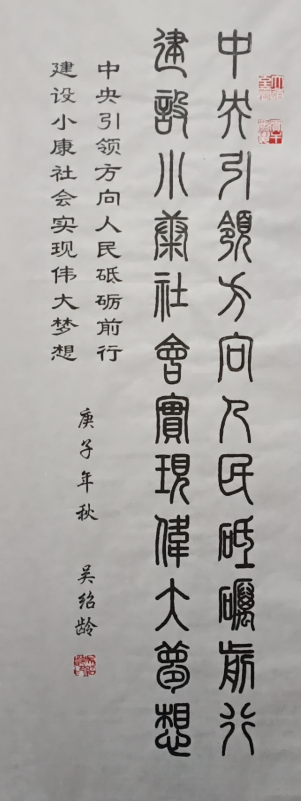 中央引領方向人民砥礪前行
建設小康社會實現偉大夢想
中央引领方向人民砥砺前行
建设小康社会实现伟大梦想
庚子年秋 吴绍龄